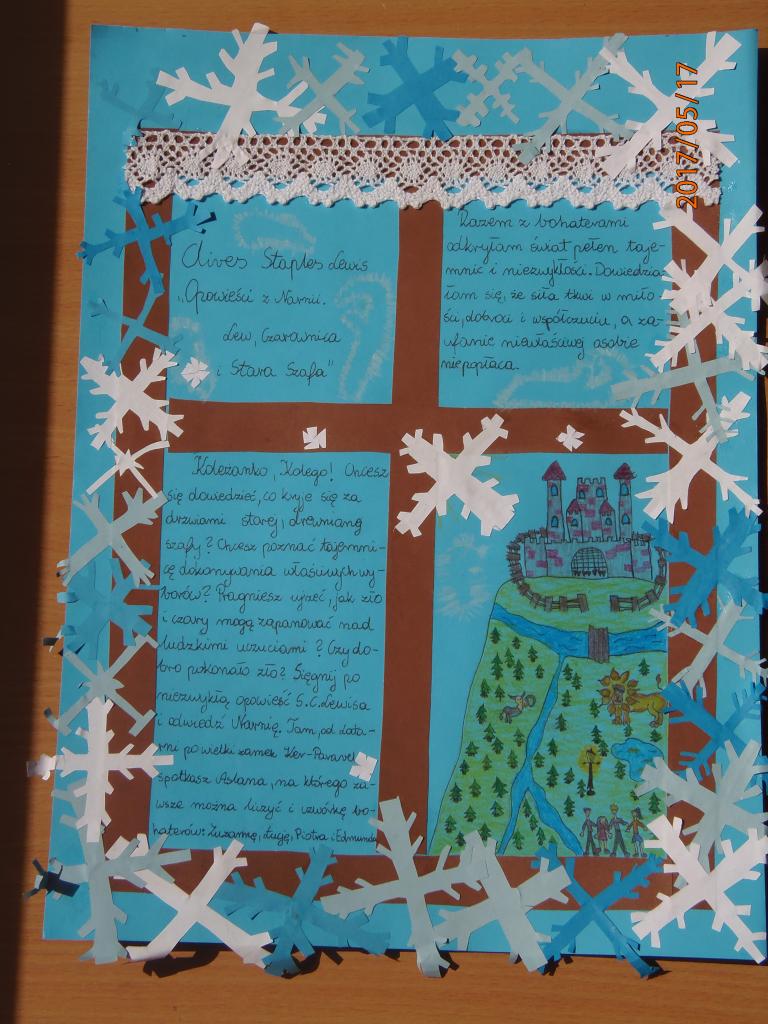 Clives Staples Lewis
„Opowieści z Narnii.
Lew, Czarownica
i Stara Szafa"
Razem z bohaterami
odkryłam świat pełen taje-
mnic i niezwykłości. Dowiedzia-
łam się, że siła tkwi w miło-
ści, dobroci i współczuciu, a za-
ufanie niewłaściwej osobie
niepopłaca.
Koleżanko, Kolego! Chcesz
się dowiedzieć, co kryje się za
drzwiami starej, drewnianej
szafy? Chcesz poznać tajemni-
cę dokonywania właściwych wy-
borów? Pragniesz ujrzeć, jak zło
i czary mogą zapanować nad
ludzkimi uczuciami? Czy do-
bro pokonało zło? Sięgnij po
niezwykłą opowieść S.C. Lewisa
i odwiedź Narnię. Tam, od lata-
rni po wielki zamek Ker-Paravel
spotkasz Aslana, na którego za-
wsze można liczyć i czwórkę bo-
haterów: Zuzannę, Łucję, Piotra i Edmunda
2017/05/17